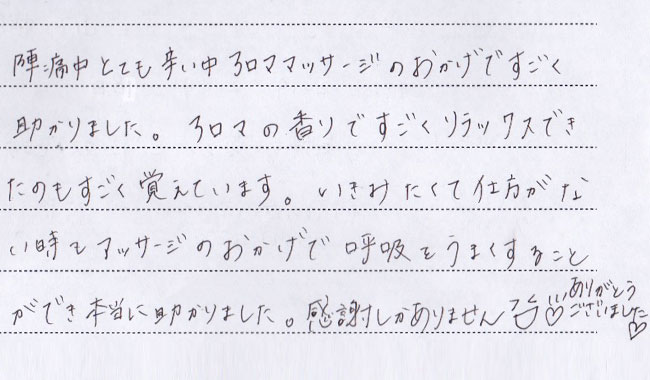 陣痛中とても辛い中アロママッサージのおかげですごく
助かりました。アロマの香りですごくリラックスでき
たのもすごく覚えています。いきみたくて仕方がな
い時もマッサージのおかげで呼吸をうまくすること
ができ本当に助かりました。感謝しかありません
ありがとう
ございました